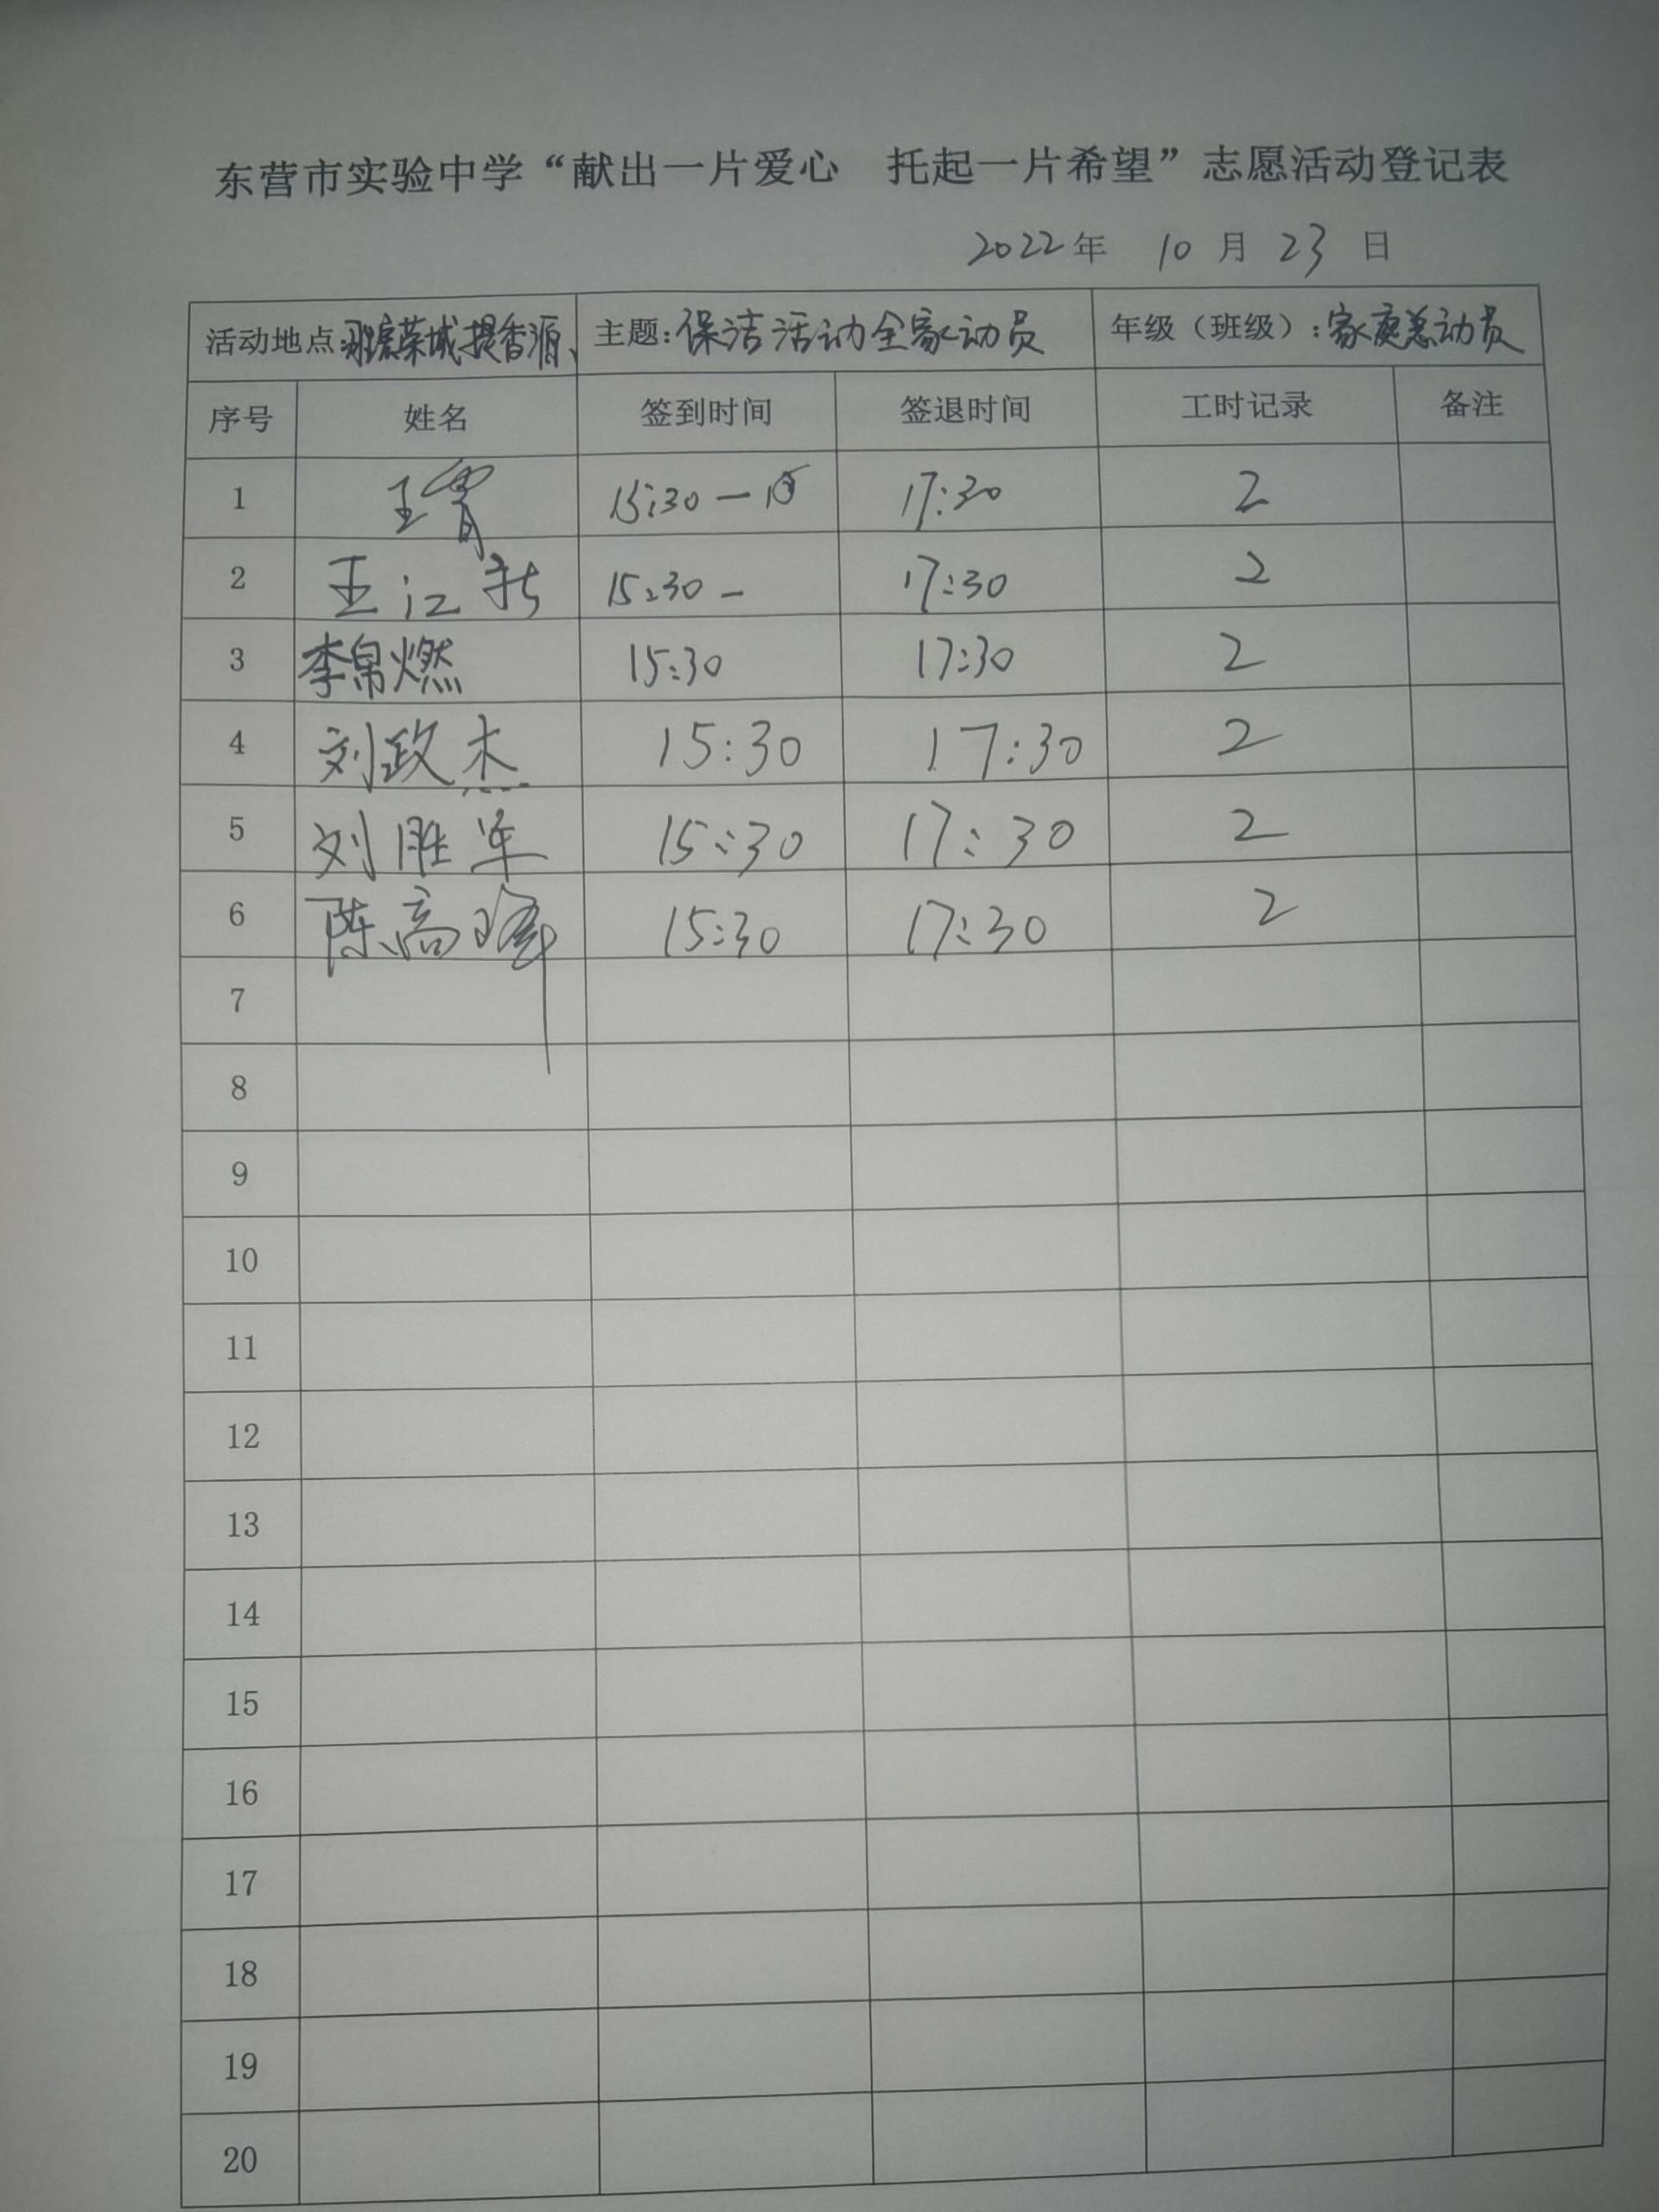 东营市实验中学“献出一片爱心 托起一片希望”志愿活动登记表
2022年 10月 23日
活动地点: 荣域提香源、 主题:保洁活动全家动员 年级（班级）:家庭总动员
序号 姓名 签到时间 签退时间 工时记录 备注
1 王霄 15:30— 17:30 2
2 王江 15:30- 17:30 2
3 李帛燃 15:30 17:30 2
4 刘政杰 15:30 17:30 2
5 刘胜军 15:30 17:30 2
6 陈高峰 15:30 17:30 2
7
8
9
10
11
12
13
14
15
16
17
18
19
20